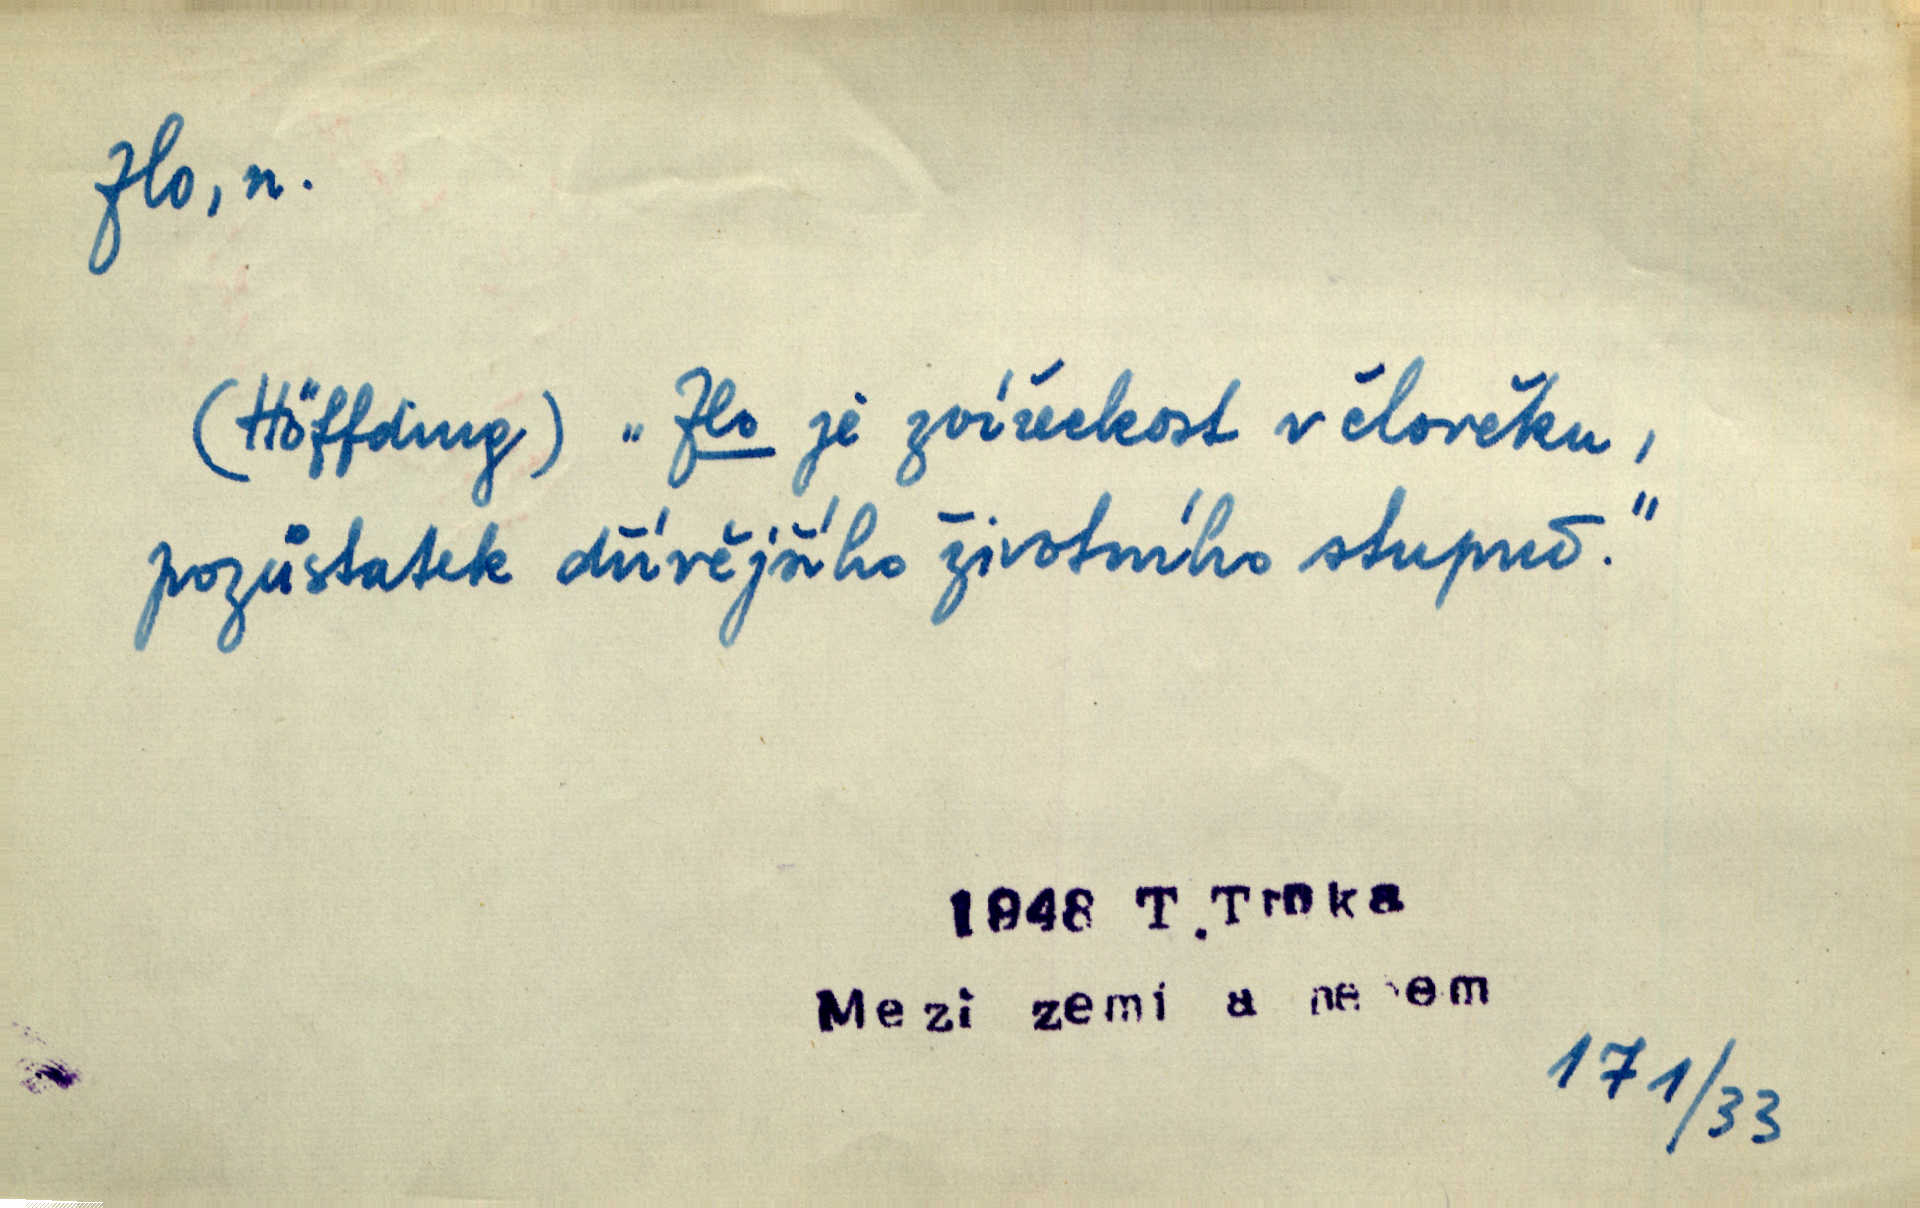 Zlo, n.
(Höffding) „Zlo je zvířeckost v člověku,
pozůstatek dřívějšího životního stupně."
1948 T.Trnka
Mezi zemí a nebem
171/33